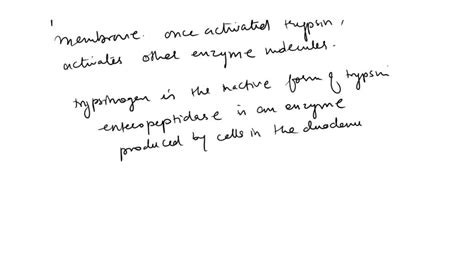 membrane. once activated trypsin,
activates other enzyme molecules.
trypsinogen is the inactive form of trypsin
enteropeptidase is an enzyme
produced by cells in the duodenu